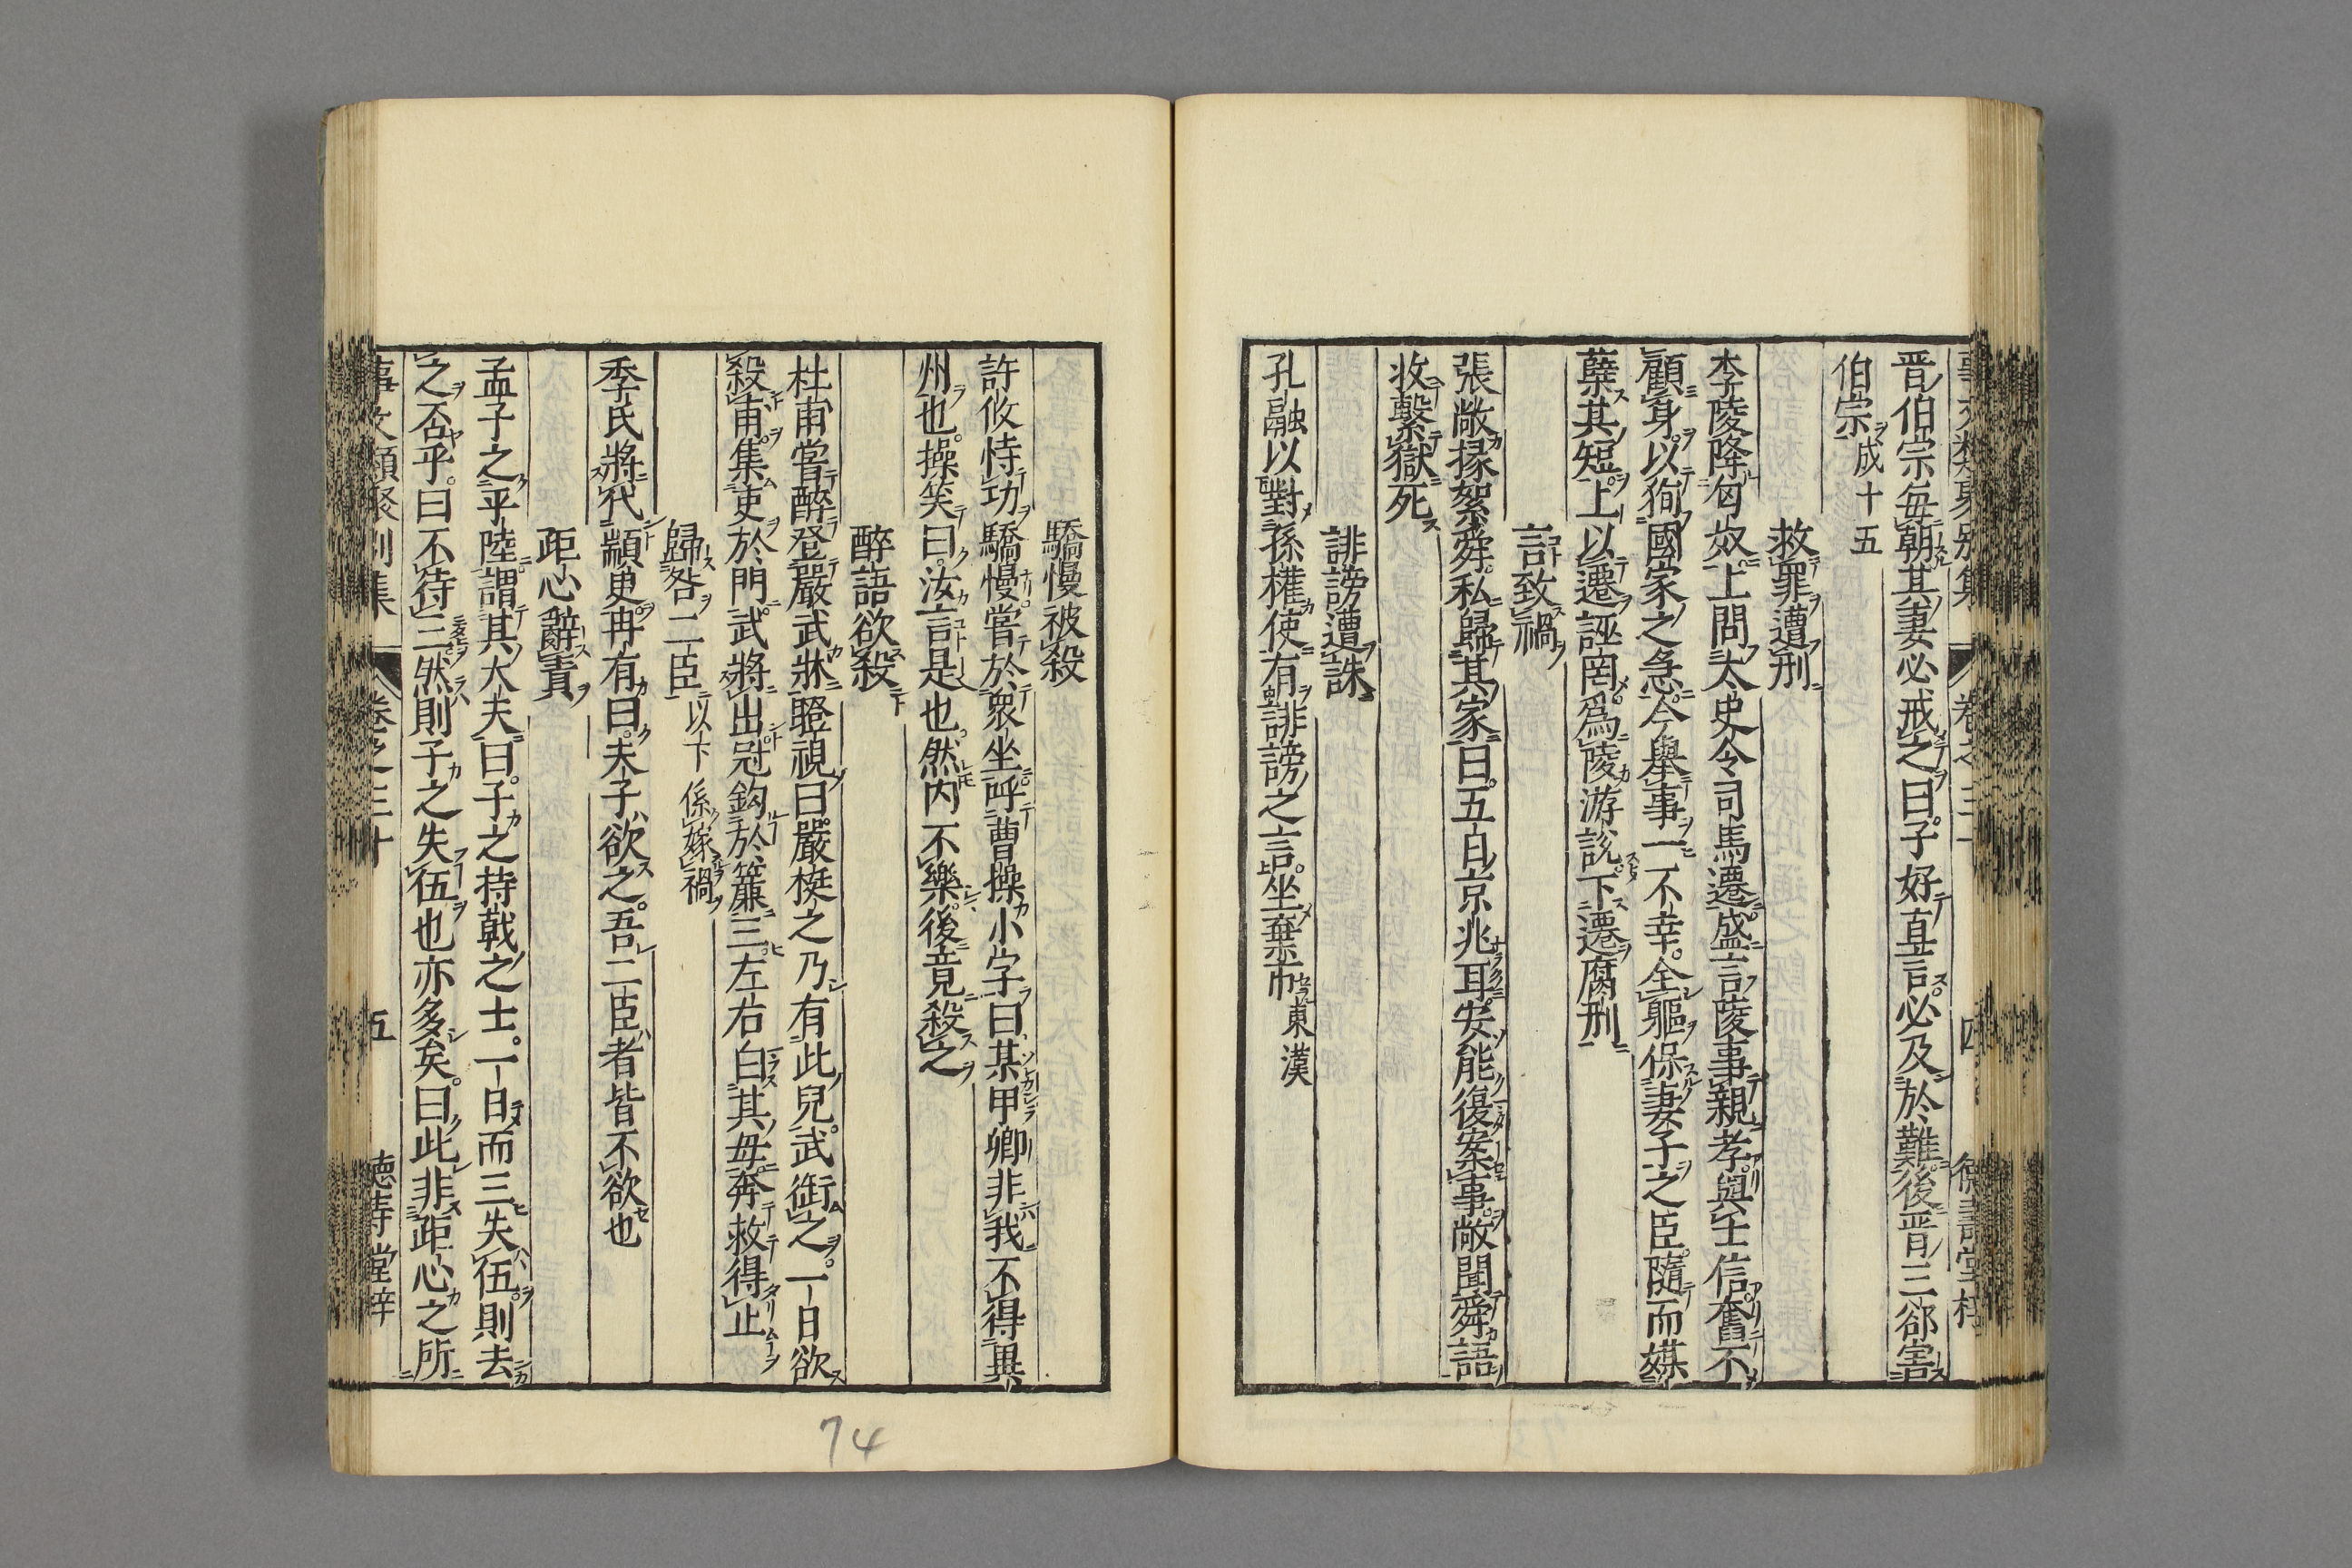 晋伯宗毎朝其妻必戒之曰子好直言必及於難後晋三郤害
伯宗成十五
救罪遭刑
李陵降匈奴上問太史令司馬遷盛言陵事親孝與士信奮不
顧身以狥國家之急今舉事一不幸全軀保妻子之臣隨而媒
蘗其短上以遷誣罔爲陵游説下遷腐刑
言致禍
張敞掾絮舜私歸其家曰五日京兆耳安能復案事敞聞舜語
收繫獄死
誹謗遭誅
孔融以對孫權使有誹謗之言坐棄市東漢
驕慢被殺
許攸恃功驕慢嘗於衆坐呼曹操小字曰某甲卿非我不得冀
州也操笑曰汝言是也然内不樂後竟殺之
醉語欲殺
杜甫嘗醉登嚴武牀瞪視曰嚴梃之乃有此兒武銜之一日欲
殺甫集吏於門武將出冠鈎於簾三左右白其毋奔救得止
歸咎二臣以下係嫁禍
季氏將代顓臾冉有曰夫子欲之吾二臣者皆不欲也
距心辭責
孟子之平陸謂其大夫曰子之持戟之士一日而三失伍則去
之否乎曰不待三然則子之失伍也亦多矣曰此非距心之所
事文類聚別集 卷之三十 五 堂梓
74